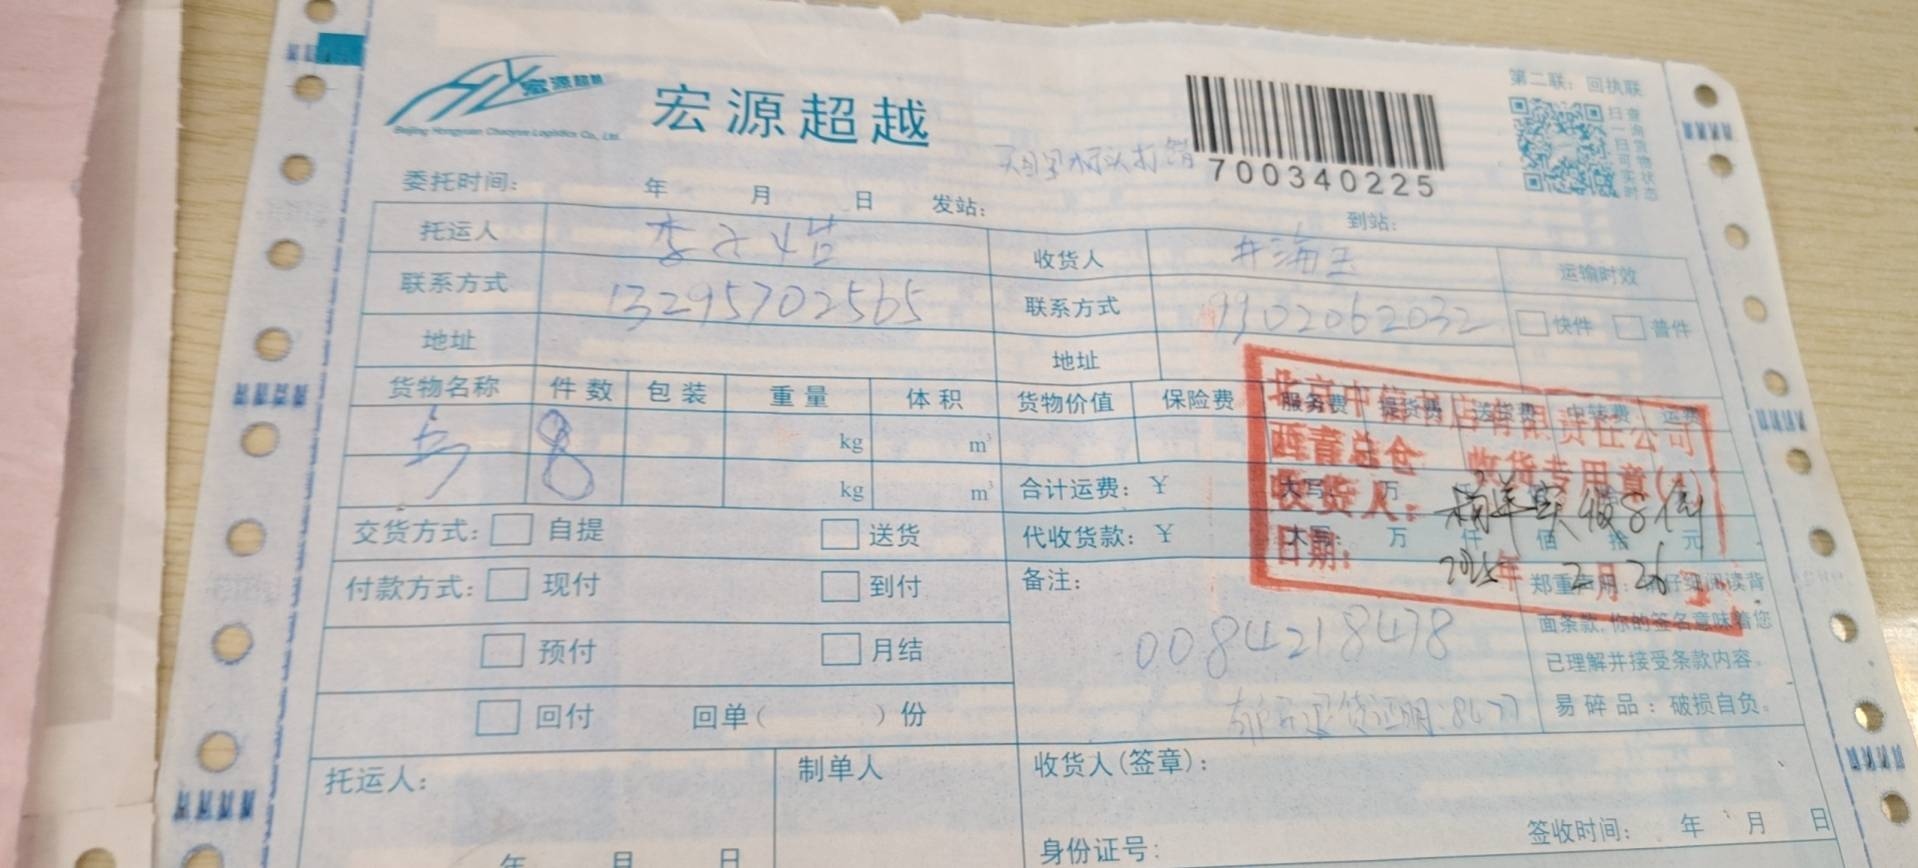 第二联：回执联
宏源超越
Beijing Hongyuan Chaoyue Logistics Co., Ltd.
宏源超越
扫一扫可实时
查询货物状态
700340225
委托时间： 年 月 日 发站： 到站：
托运人 收货人 井海玉 运输时效
联系方式 13295702565 联系方式 9902062032 快件 普件
地址 地址
货物名称 件数 包装 重量 体积 货物价值 保险费 服务费 提货费 送货费 中转费 运费
8 kg m³
kg m³ 合计运费：￥ 大写： 万
交货方式： 自提 送货 代收货款：￥ 大写： 万 仟 佰 拾 元
付款方式： 现付 到付 备注：
预付 月结 0084218478
回付 回单( )份 退货证明:8477
北京中信书店有限责任公司
西青总仓 收货专用章(4)
收货人：
日期： 2025年 2月 26
郑重声明：请仔细阅读背
面条款,你的签名意味着您
已理解并接受条款内容。
易碎品：破损自负。
托运人： 制单人 收货人(签章)：
签收时间： 年 月 日
年 月 日 身份证号：